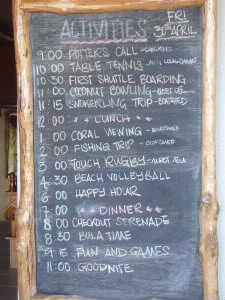 ACTIVITIES FRI
30TH APRIL
9:00 POTTERS CALL -
10:00 TABLE TENNIS -
10:30 FIRST SHUTTLE BOARDING
11:00 COCONUT BOWLING -
11:15 SNORKELLING TRIP - BOATSHED
12:00 * * LUNCH * *
1:00 CORAL VIEWING - BOATSHED
2:00 FISHING TRIP - BOATSHED
3:00 TOUCH RUGBY -
4:30 BEACH VOLLEYBALL
6:00 HAPPY HOUR
7:00 * * DINNER * *
8:00 CHECKOUT SERENADE
8:30 BULA TIME
9:15 FUN AND GAMES
11:00 GOODNITE